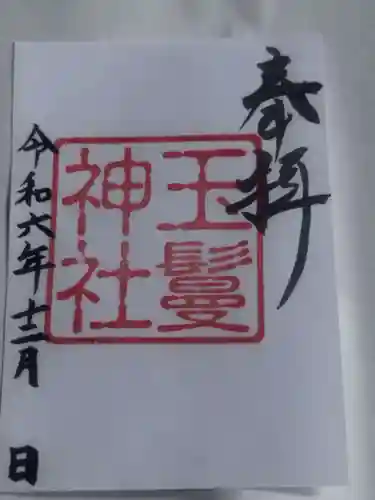 奉拝
玉鬘
神社
令和六年十二月 日